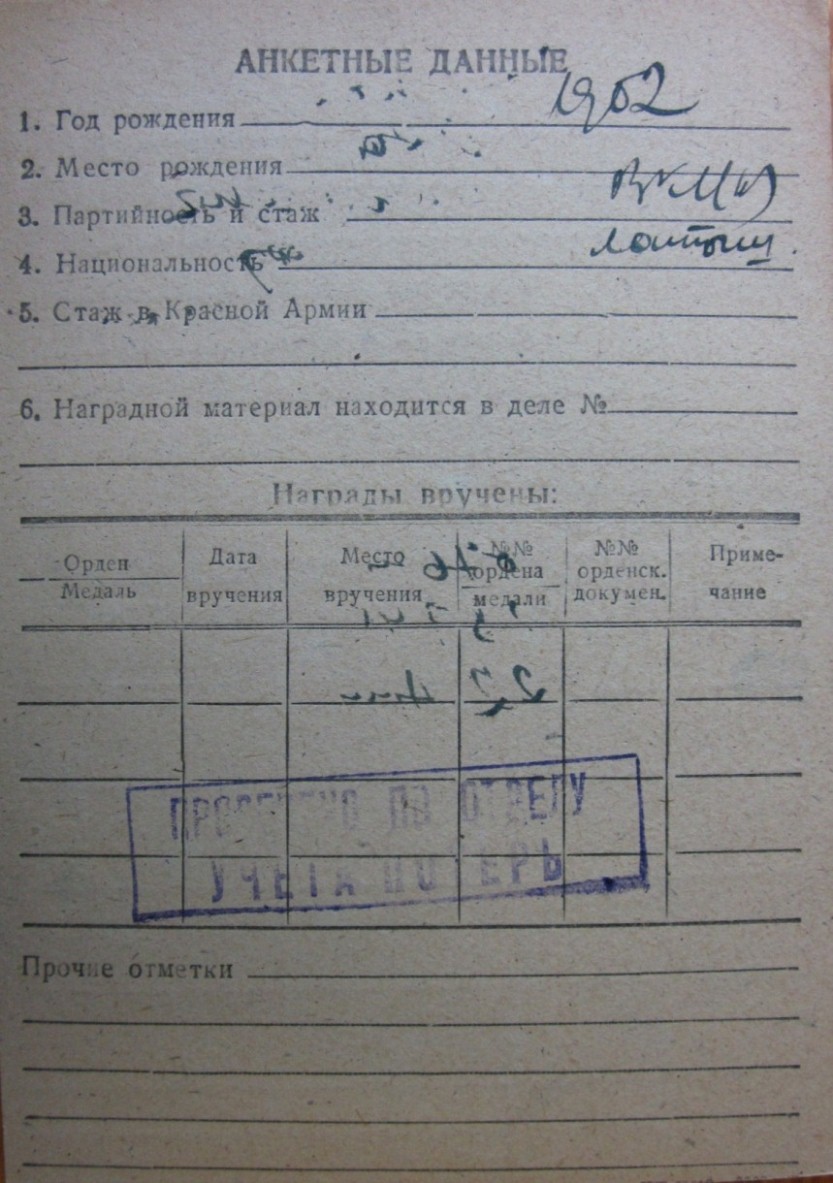 АНКЕТНЫЕ ДАННЫЕ
1. Год рождения 1902
2. Место рождения
3. Партийность и стаж ВКП(б)
4. Национальность латыш.
5. Стаж в Красной Армии
6. Наградной материал находится в деле №
Награды вручены:
Орден
Медаль
Дата
вручения
Место
вручения
№№
ордена
медали
№№
орденск.
докумен.
Приме-
чание
ПРОВЕРЕНО ПО ОТДЕЛУ
УЧЕТА ПОТЕРЬ
Прочие отметки